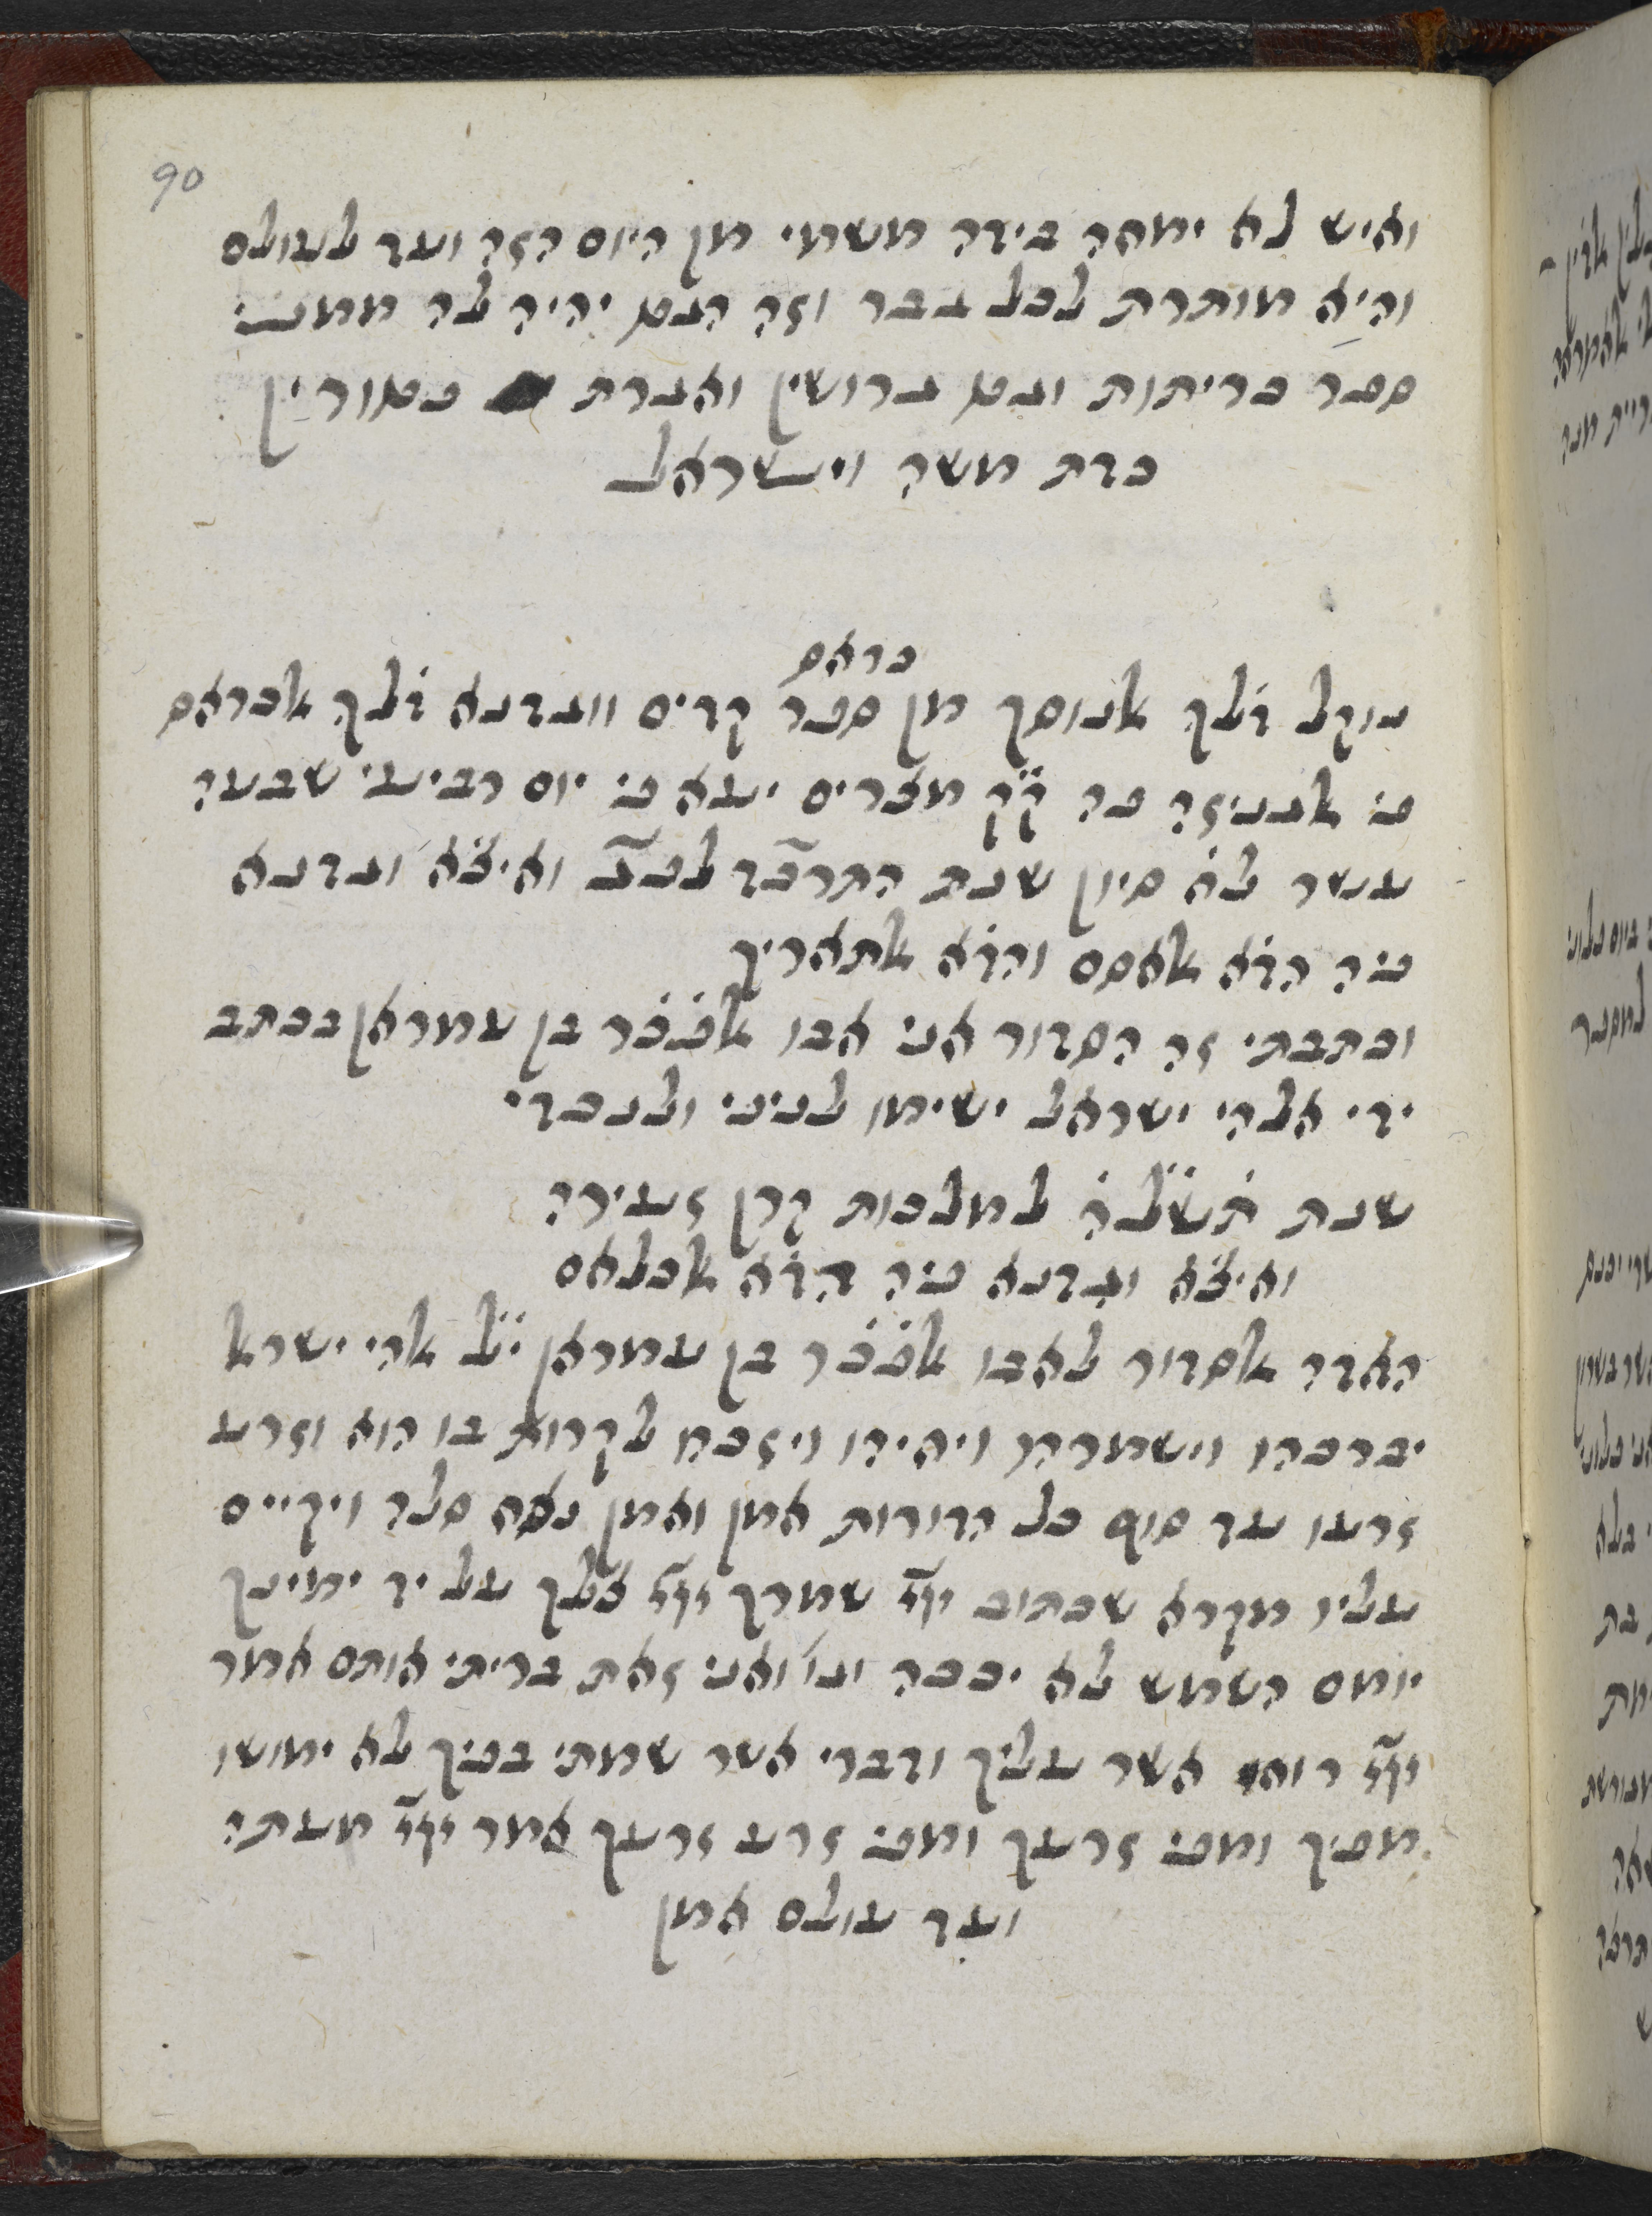 90
ואיש לא ימחה בידה משמי מן היום הזה ועד לעולם
והיא מותרת לכל גבר וזה הגט יהיה לה ממני
ספר כריתות וגט גרושין ואגרת פטורין
כדת משה וישראל
כראס
נוקל דלך אלנוסך מן ספר קדים ווגדנא דלך אלכראס
פי אלגניזה פה ק̈ק̈ מצרים יעא פי יום רביעי שבעה
עשר לח̇ סיון שנת התרפ̄ד לפ̄ג ואיצ̇א וגדנא
פיה הד̇א אלאסם והד̇א אלתאריך
וכתבתי זה הסדור אני אבו אלפ̇כ̇ר בן עמראן בכתב
ידי אלהי ישראל ישימו לניני ולנכדי
שנת ת̇ש̇ל̇ה̇ למלכות קרן זעירה
ואיצ̇א וגדנא פיה הד̇א אלכלאם
האדה אלסדור לאבו אלפ̇כ̇ר בן עמראן י̇צ̇ל אלהי ישראל
יברכהו וישמרהו ויחיהו ויזכהו לקרות בו הוא וזרע
זרעו עד סוף כל הדורות אמן ואמן נצח סלה ויקיים
עליו מקרא שכתוב ייי שמרך ייי צלך על יד ימינך
יומם השמש לא יככה וגו׳ ואני זאת בריתי אותם אמר
ייי רוחי אשר עליך ודברי אשר שמתי בפיך לא ימושו
מפיך ומפי זרעך ומפי זרע זרעך אמר ייי מעתה
ועד עולם אמן